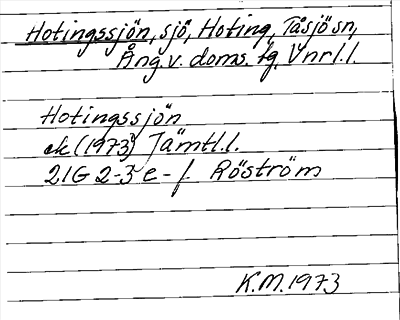 Hotingssjön, sjö, Hoting, Tåsjö sn,
Ång. v. doms. tg, Vnrl. l.
Hotingssjön
ek (1973) Jämtl. l.
21G 2-3 e-f Röström
K.M. 1973